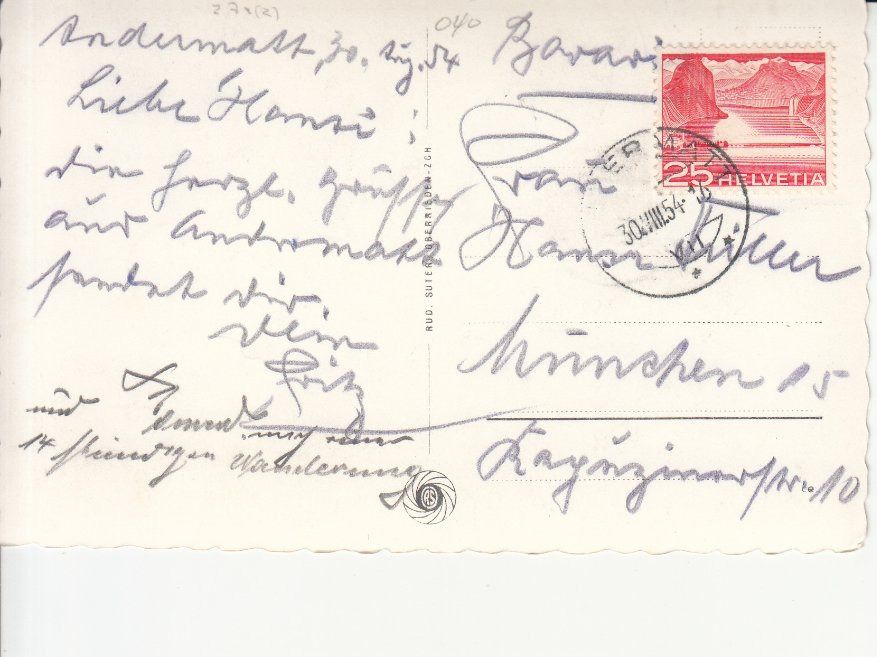 27x(2)
040
Andermatt, 30. Aug. 54
Liebe Hansi!
die herzl. Grüsse
aus Andermatt
sendet dir
Dein
Fritz
und
14 stündigen Wanderung
RUD. SUTER, OBERRIEDEN-ZCH
Bavari
25 HELVETIA
ERMATT
30.VIII.54-16
Frau
Hansi Müller
München 15
Kapuzinerstr. 10